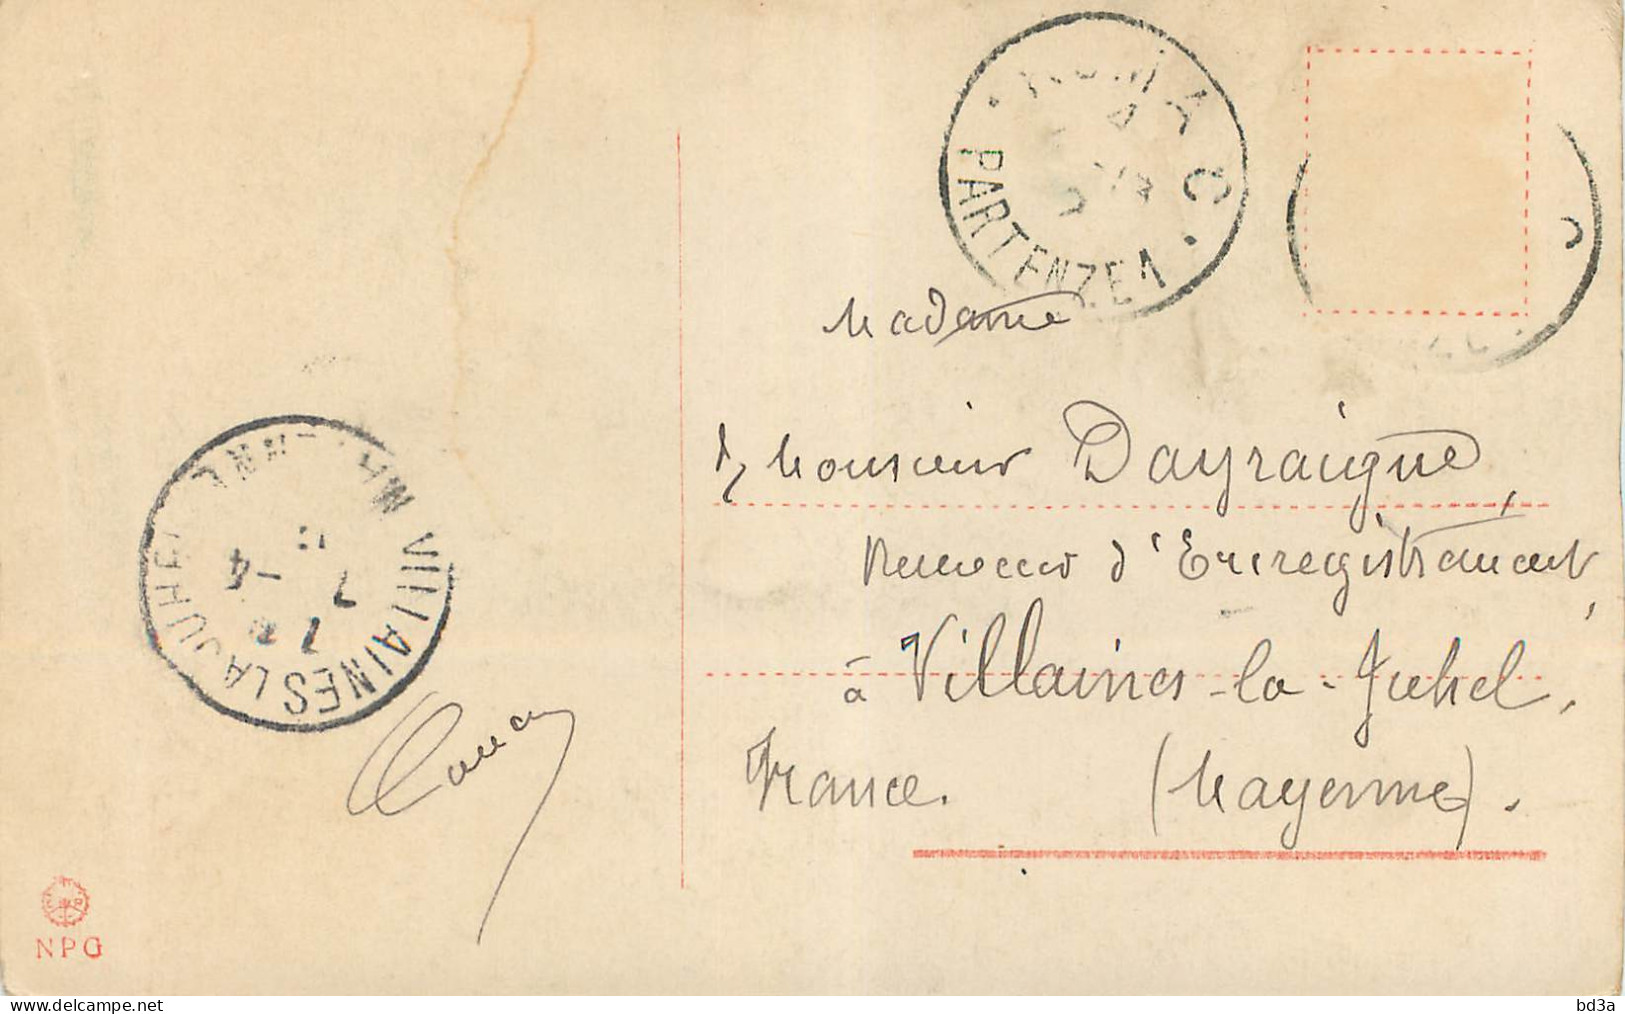 ROMA C
PARTENZE
Madame
& Monsieur Dayraigue,
Receveur d'Enregistrement,
à Villaines-la-Juhel.
France. (Mayenne).
VILLAINES LA JUHEL
7 -4
NPG
www.delcampe.net
bd3a